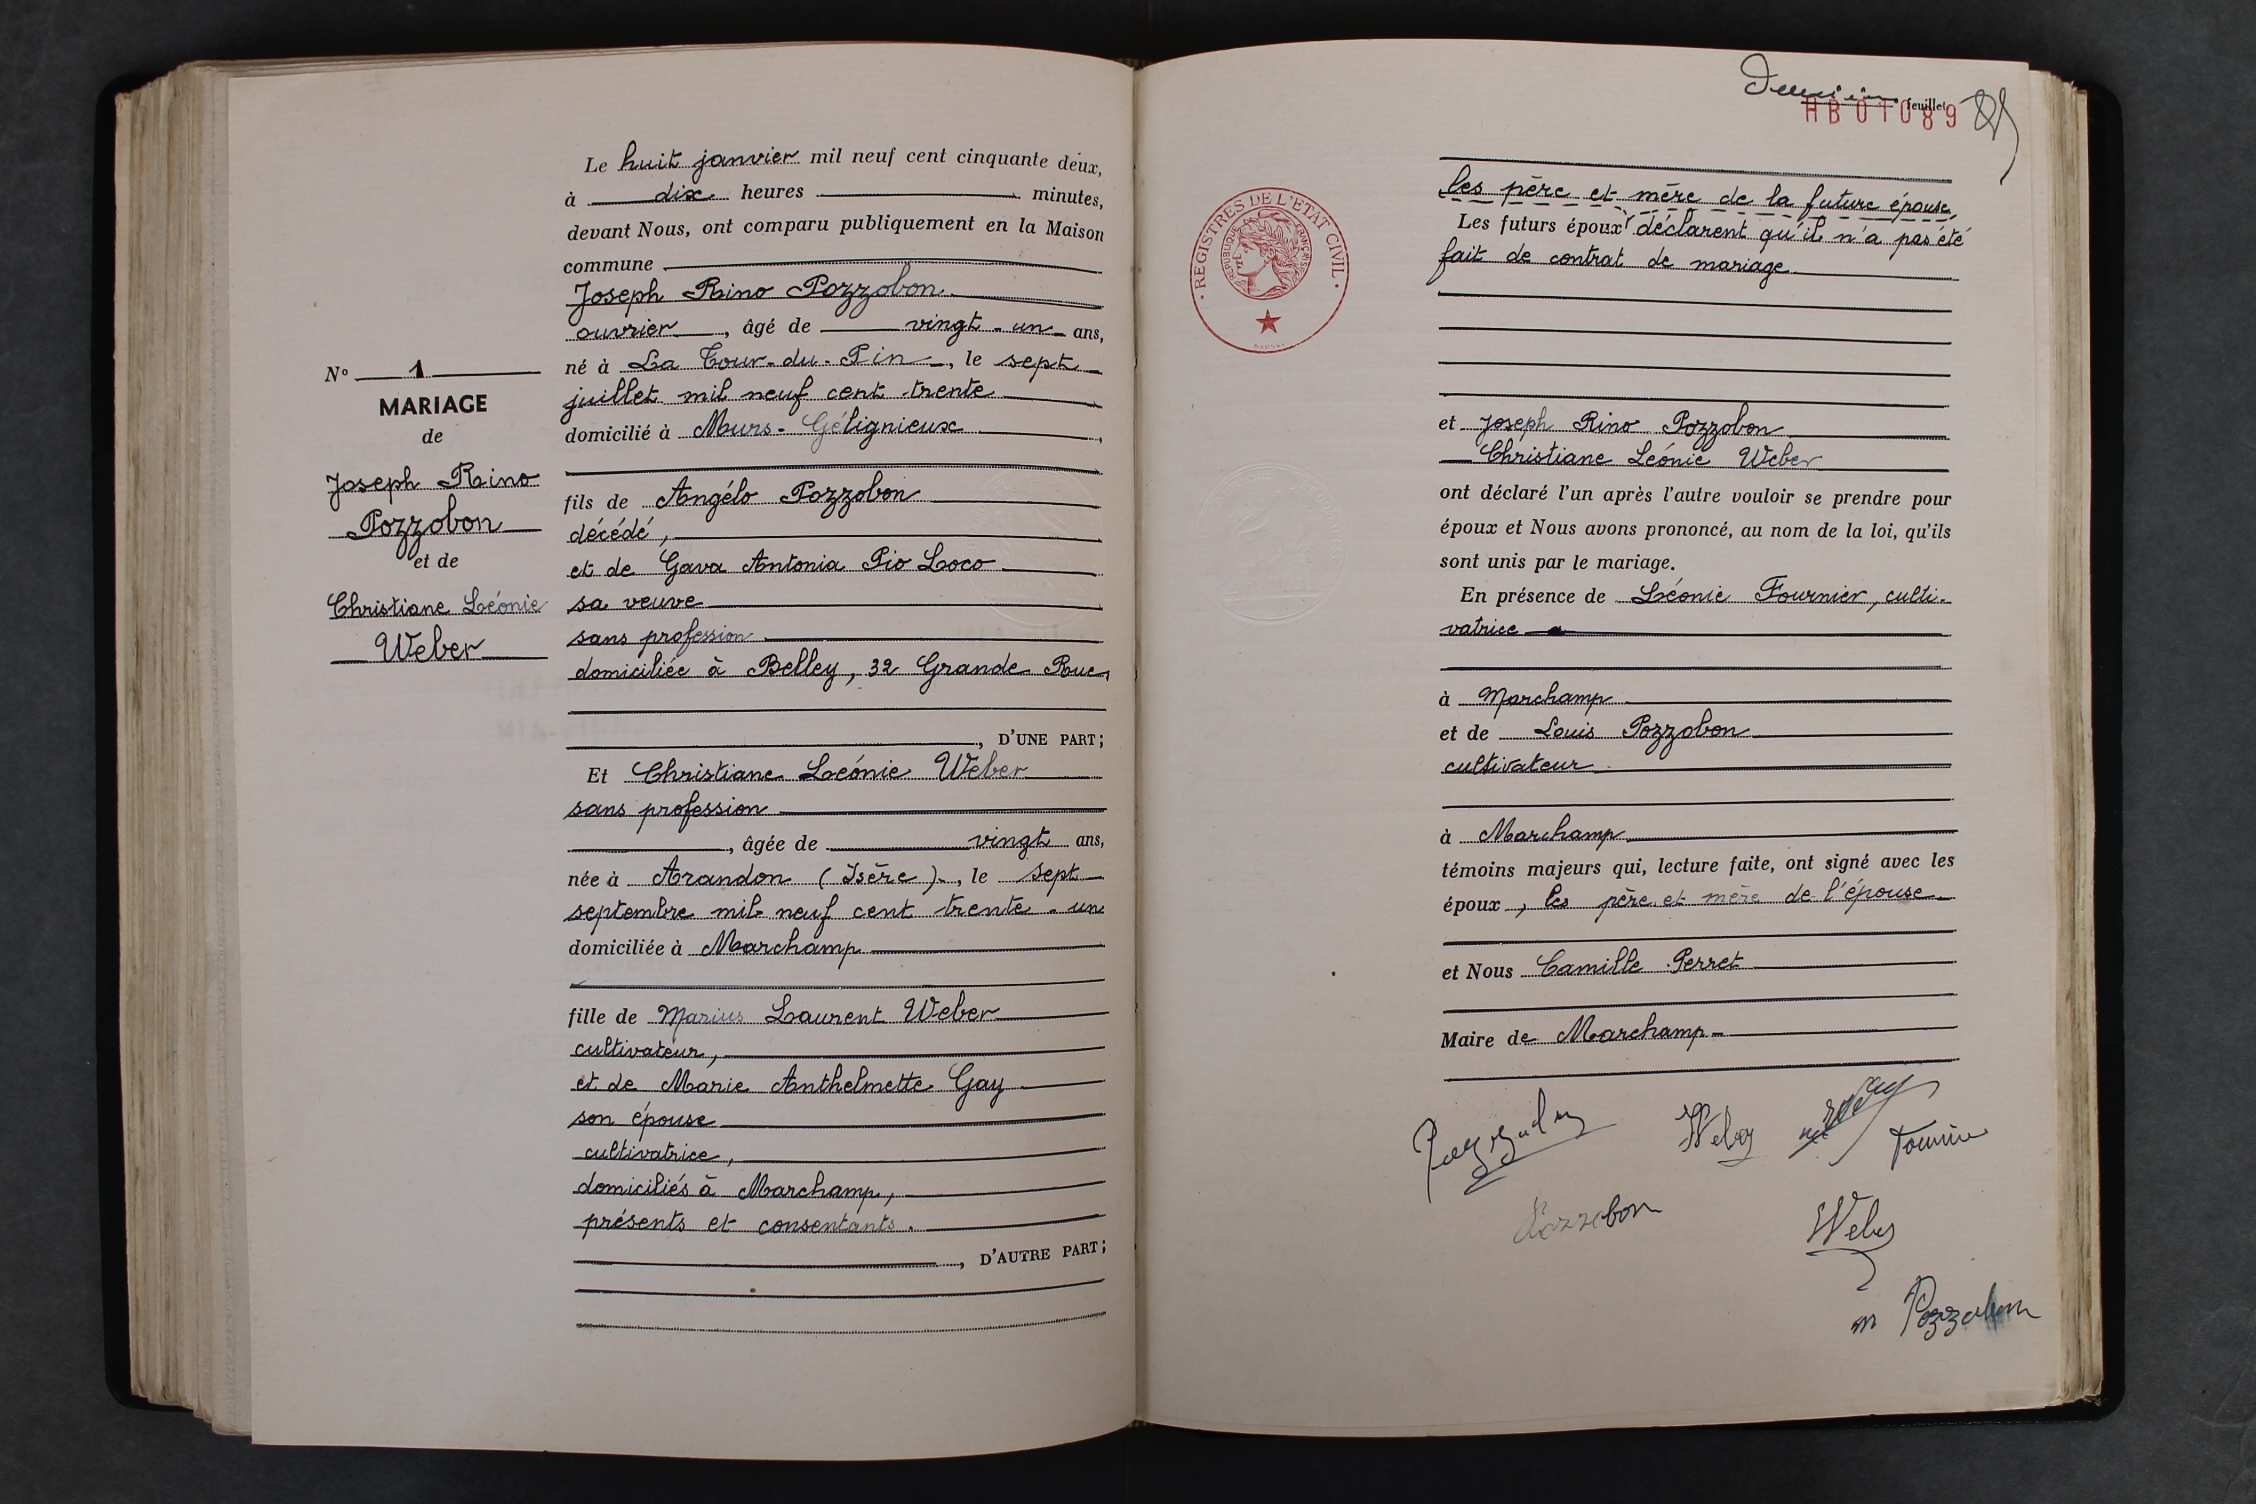 Le huit janvier mil neuf cent cinquante deux,
à dix heures minutes,
devant Nous, ont comparu publiquement en la Maison
commune
Joseph Rino Pozzobon
ouvrier, âgé de vingt-un ans,
né à La Tour-du-Pin, le sept
juillet mil neuf cent trente
domicilié à Murs-Gélignieux,
fils de Angélo Pozzobon
décédé,
et de Gava Antonia Pio Loco
sa veuve
sans profession
domiciliée à Belley, 32 Grande Rue,
, D'UNE PART;
Et Christiane Léonie Weber
sans profession
, âgée de vingt ans,
née à Arandon (Isère), le sept
septembre mil neuf cent trente-un
domiciliée à Marchamp
fille de Marius Laurent Weber
cultivateur,
et de Marie Anthelmette Gay
son épouse
cultivatrice,
domiciliés à Marchamp,
présents et consentants.
, D'AUTRE PART;
N° 1
MARIAGE
de
Joseph Rino
Pozzobon
et de
Christiane Léonie
Weber
feuillet
AB 01089
REGISTRES DE L'ETAT CIVIL
REPUBLIQUE FRANÇAISE
les père et mère de la future épouse,
Les futurs époux déclarent qu'il n'a pas été
fait de contrat de mariage
et Joseph Rino Pozzobon
Christiane Léonie Weber
ont déclaré l'un après l'autre vouloir se prendre pour
époux et Nous avons prononcé, au nom de la loi, qu'ils
sont unis par le mariage.
En présence de Léonie Fournier, culti-
vatrice
à Marchamp
et de Louis Pozzobon
cultivateur
à Marchamp
témoins majeurs qui, lecture faite, ont signé avec les
époux, les père et mère de l'épouse
et Nous Camille Perret
Maire de Marchamp
Weber
Pozzobon
Weber
m Pozzobon